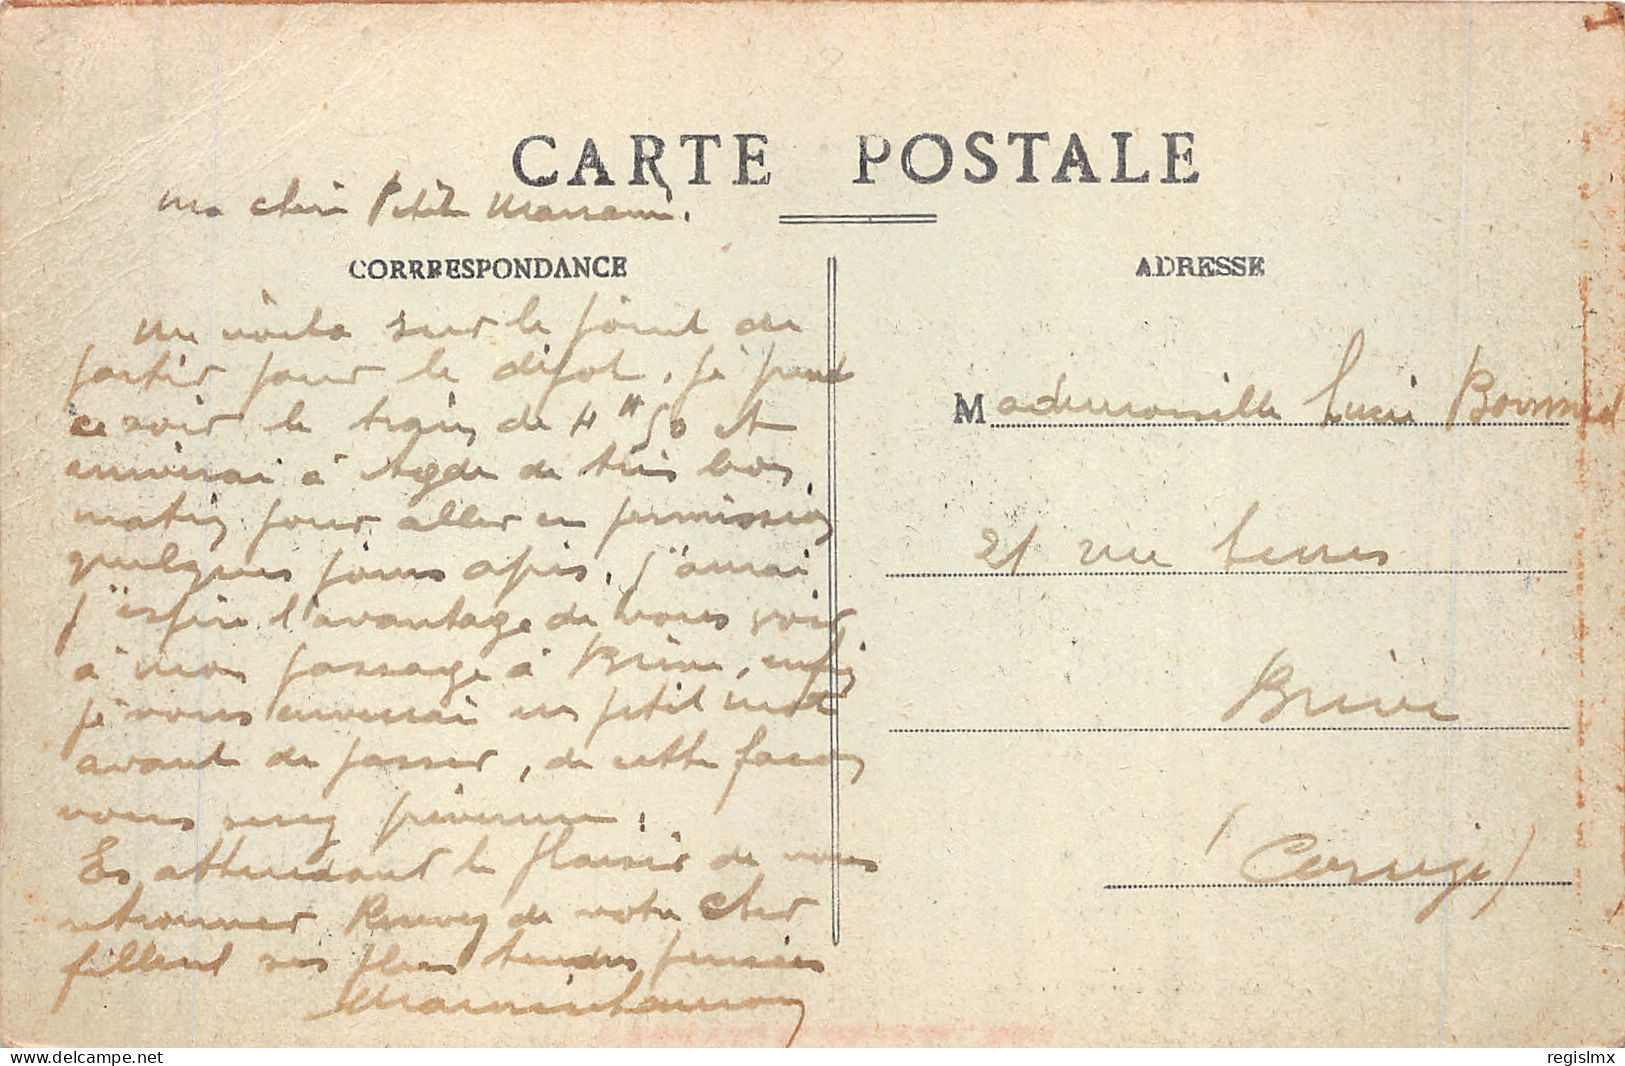 CARTE POSTALE
Ma chère Petite Marraine.
CORRRESPONDANCE
Me voila sur le point de
partir pour le dépot, je prend
ce soir le train de 4H 50 et
arriverai à Agde de très bon
matin pour aller en permission
quelques jours après. J'aurai
j'espère l'avantage de vous voir
à mon passage à Brive, enfin
je vous enverrai un petit mot
avant de passer, de cette facon
vous serez prévenue.
En attendant le plaisir de vous
retrouver Recevez de votre cher
filleul ses plus tendres pensées
ADRESSE
Mademoiselle Lucie
21 rue
Brive
(Corrèze)
delcampe.net
regislmx